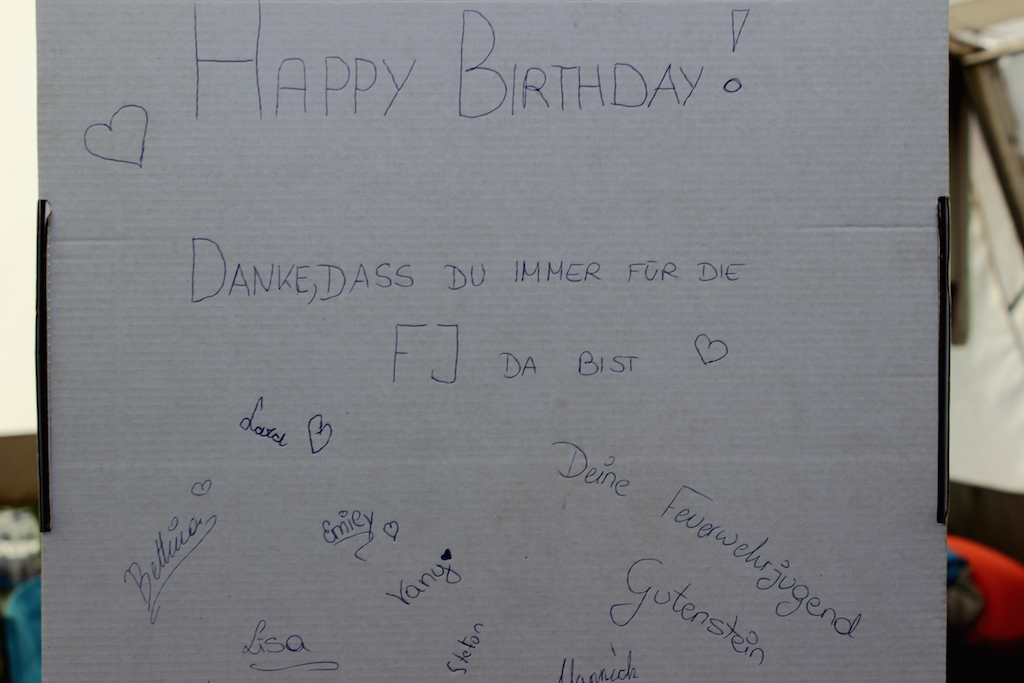 HAPPY BIRTHDAY!
DANKE, DASS DU IMMER FÜR DIE
FJ DA BIST
Lara
Deine
Feuerwehrjugend
Gutenstein
Bettina
Emily
Vany
Lisa
Stefan
Yannick